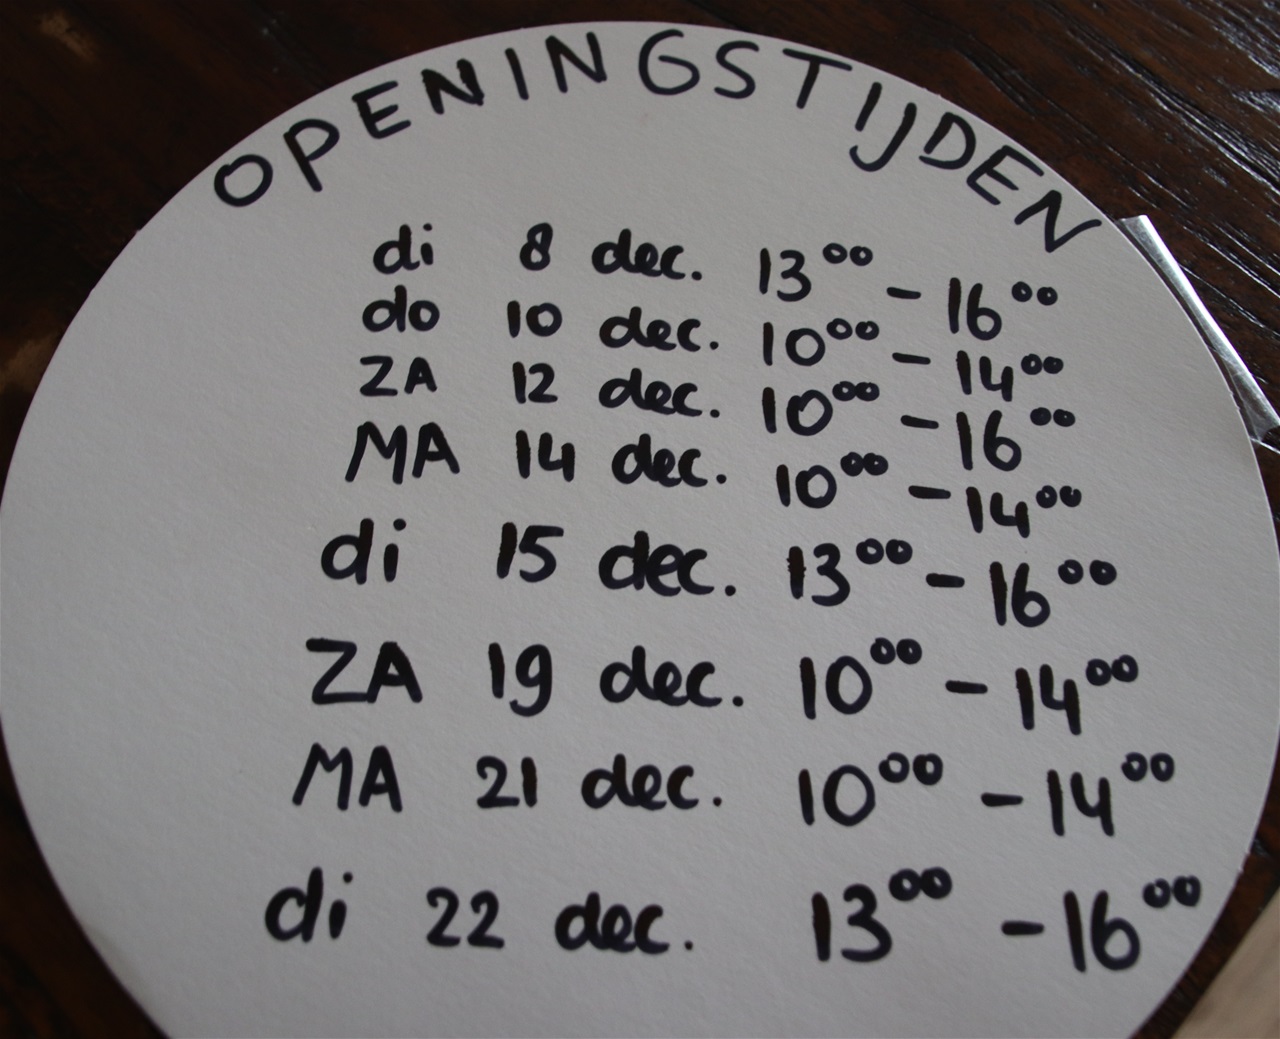 OPENINGSTIJDEN
di 8 dec. 13⁰⁰ - 16⁰⁰
do 10 dec. 10⁰⁰ - 14⁰⁰
ZA 12 dec. 10⁰⁰ - 16⁰⁰
MA 14 dec. 10⁰⁰ - 14⁰⁰
di 15 dec. 13⁰⁰ - 16⁰⁰
ZA 19 dec. 10⁰⁰ - 14⁰⁰
MA 21 dec. 10⁰⁰ - 14⁰⁰
di 22 dec. 13⁰⁰ - 16⁰⁰